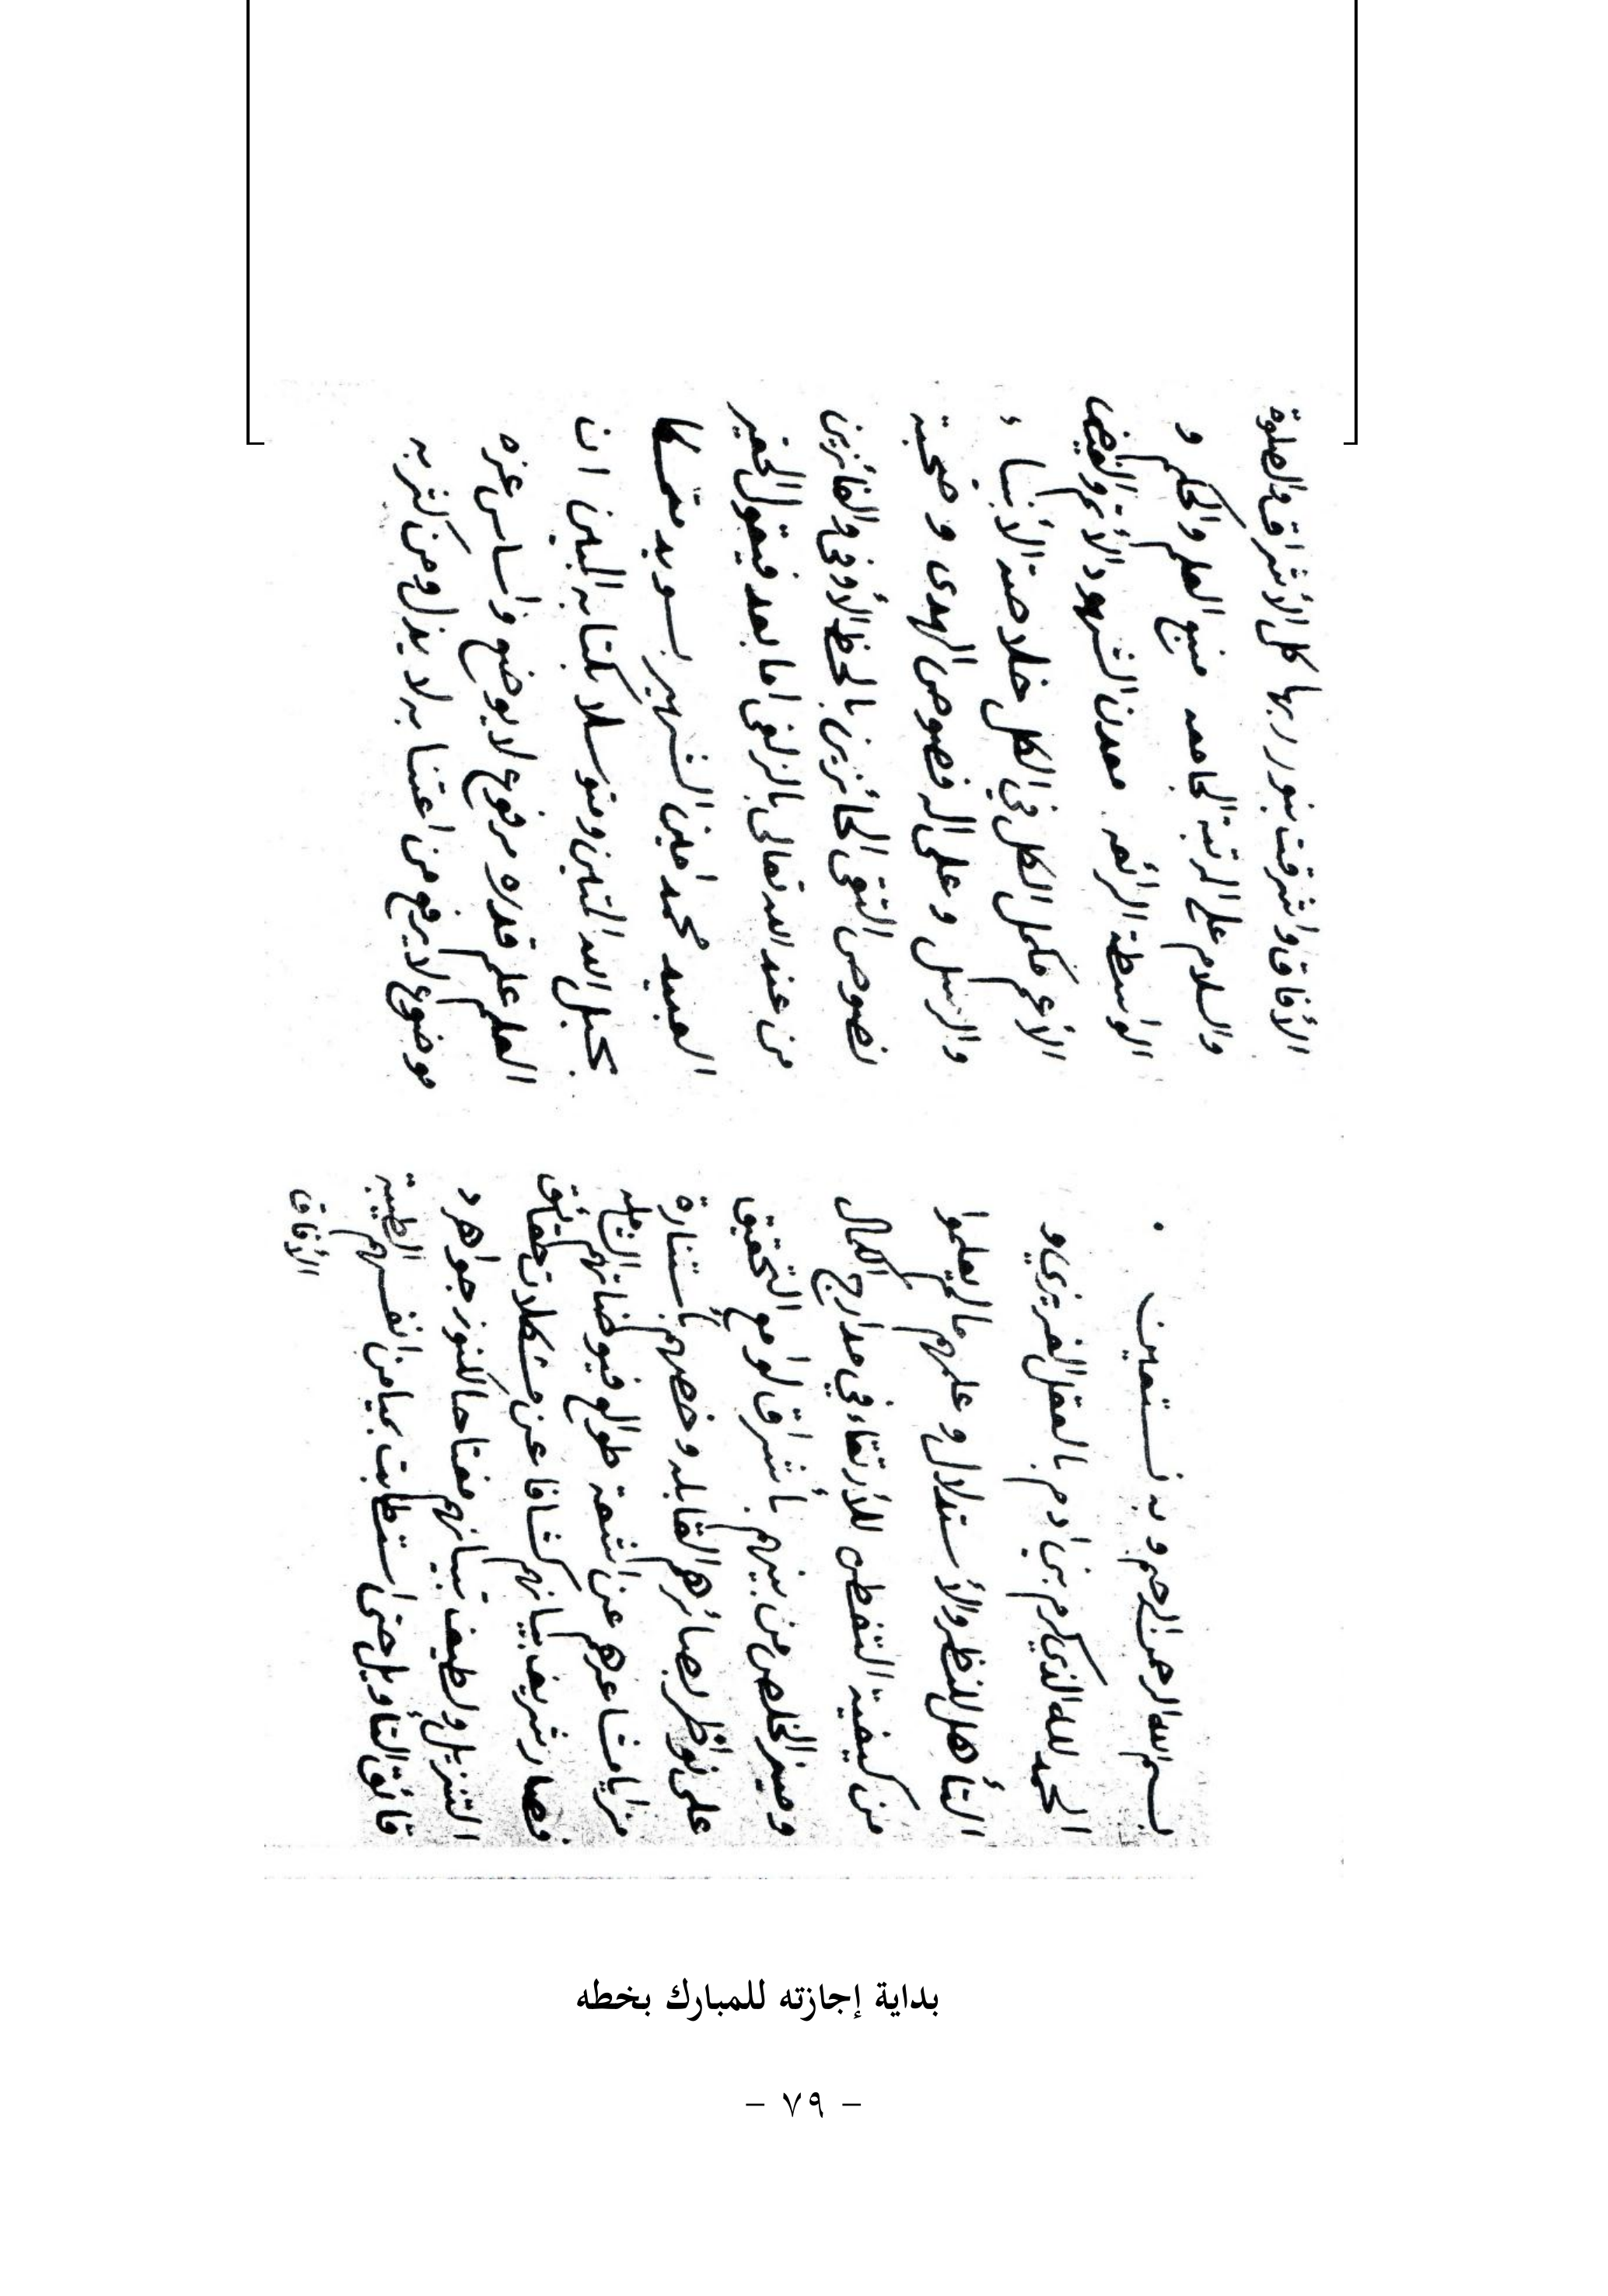 بسم الله الرحمن الرحيم وبه نستعين
الحمد لله الذي كرم بني ادم بالعقل الغريزي و
التأهل للنظر والأستدلال وعلمهم مالم يعلموا
من كيفية التفطن للأرتقاء في مدارج الكمال
وميز الخلص من بينهم بأشراق لوامع التحقيق
على نواظر بصائرهم القابله وخصهم بأستنارة
مزايا مشاعرهم عن اشعة طوالع فيوضاتهم الشامله
فصار شريف بيانهم كشافا عن مشكلات حقائق
التنزيل ولطيف تبيانهم مفتاحا لكنوز جواهر د
قائق التأويل حتى استطابت بميامن انفسهم الطيبة
الأفاق
الأفاق واشرقت بنور ربها كل الأشراق والصلوة
والسلام على الرتبة الجامعه منبع العلم والحكم و
الواسطة الرائعه معدن الشهود الأتم والفيض
الأعم مكمل الكل في الكل خلاصة الأنبياء
والرسل وعلى اله فصوص الهدى وصحبة
نصوص التقى الحائزين بالحظ الأوفى والفائزين
من عند الله تعالى بالزلفى اما بعد فيقول الحقير
العبيد محمد امين الشهير بسويد متمسكا
بحبل الله المتين ومتوسلا بكتابه المبين ان
العلم علم قدره مرفوع لا يوضع واساس عزه
موضوع لا يرفع من اعتنا به لا يذل ومن كثر به
بداية إجازته للمبارك بخطه
- ٧٩ -